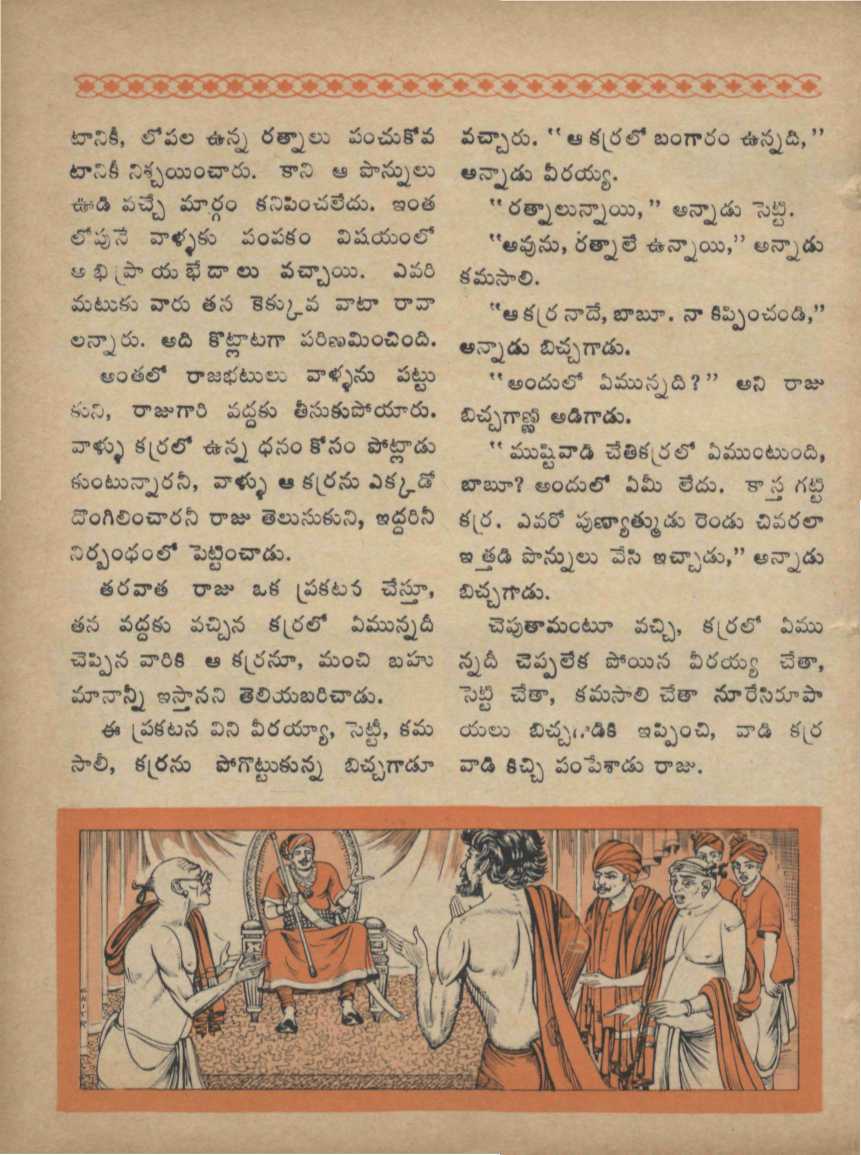 టానికీ, లోపల ఉన్న రత్నాలు పంచుకోవ
టానికీ నిశ్చయించారు. కాని ఆ పొన్నులు
ఊడి వచ్చే మార్గం కనిపించలేదు. ఇంత
లోపునే వాళ్ళకు పంపకం విషయంలో
అభిప్రాయభేదాలు వచ్చాయి. ఎవరి
మటుకు వారు తన కెక్కువ వాటా రావా
లన్నారు. అది కొట్లాటగా పరిణమించింది.
అంతలో రాజభటులు వాళ్ళను పట్టు
కుని, రాజుగారి వద్దకు తీసుకుపోయారు.
వాళ్ళు కర్రలో ఉన్న ధనం కోసం పోట్లాడు
కుంటున్నారనీ, వాళ్ళు ఆ కర్రను ఎక్కడో
దొంగిలించారనీ రాజు తెలుసుకుని, ఇద్దరినీ
నిర్బంధంలో పెట్టించాడు.
తరవాత రాజు ఒక ప్రకటన చేస్తూ,
తన వద్దకు వచ్చిన కర్రలో ఏమున్నదీ
చెప్పిన వారికి ఆ కర్రనూ, మంచి బహు
మానాన్నీ ఇస్తానని తెలియబరిచాడు.
ఈ ప్రకటన విని వీరయ్యా, సెట్టీ, కమ
సాలీ, కర్రను పోగొట్టుకున్న బిచ్చగాడూ
వచ్చారు. "ఆ కర్రలో బంగారం ఉన్నది,"
అన్నాడు వీరయ్య.
"రత్నాలున్నాయి," అన్నాడు సెట్టి.
"అవును, రత్నాలే ఉన్నాయి," అన్నాడు
కమసాలి.
"ఆ కర్ర నాదే, బాబూ. నా కిప్పించండి,"
అన్నాడు బిచ్చగాడు.
"అందులో ఏమున్నది?" అని రాజు
బిచ్చగాణ్ణి అడిగాడు.
"ముష్టివాడి చేతికర్రలో ఏముంటుంది,
బాబూ? అందులో ఏమీ లేదు. కాస్త గట్టి
కర్ర. ఎవరో పుణ్యాత్ముడు రెండు చివరలా
ఇత్తడి పొన్నులు వేసి ఇచ్చాడు," అన్నాడు
బిచ్చగాడు.
చెపుతామంటూ వచ్చి, కర్రలో ఏము
న్నదీ చెప్పలేక పోయిన వీరయ్య చేతా,
సెట్టి చేతా, కమసాలి చేతా నూరేసిరూపా
యలు బిచ్చగాడికి ఇప్పించి, వాడి కర్ర
వాడి కిచ్చి పంపేశాడు రాజు.